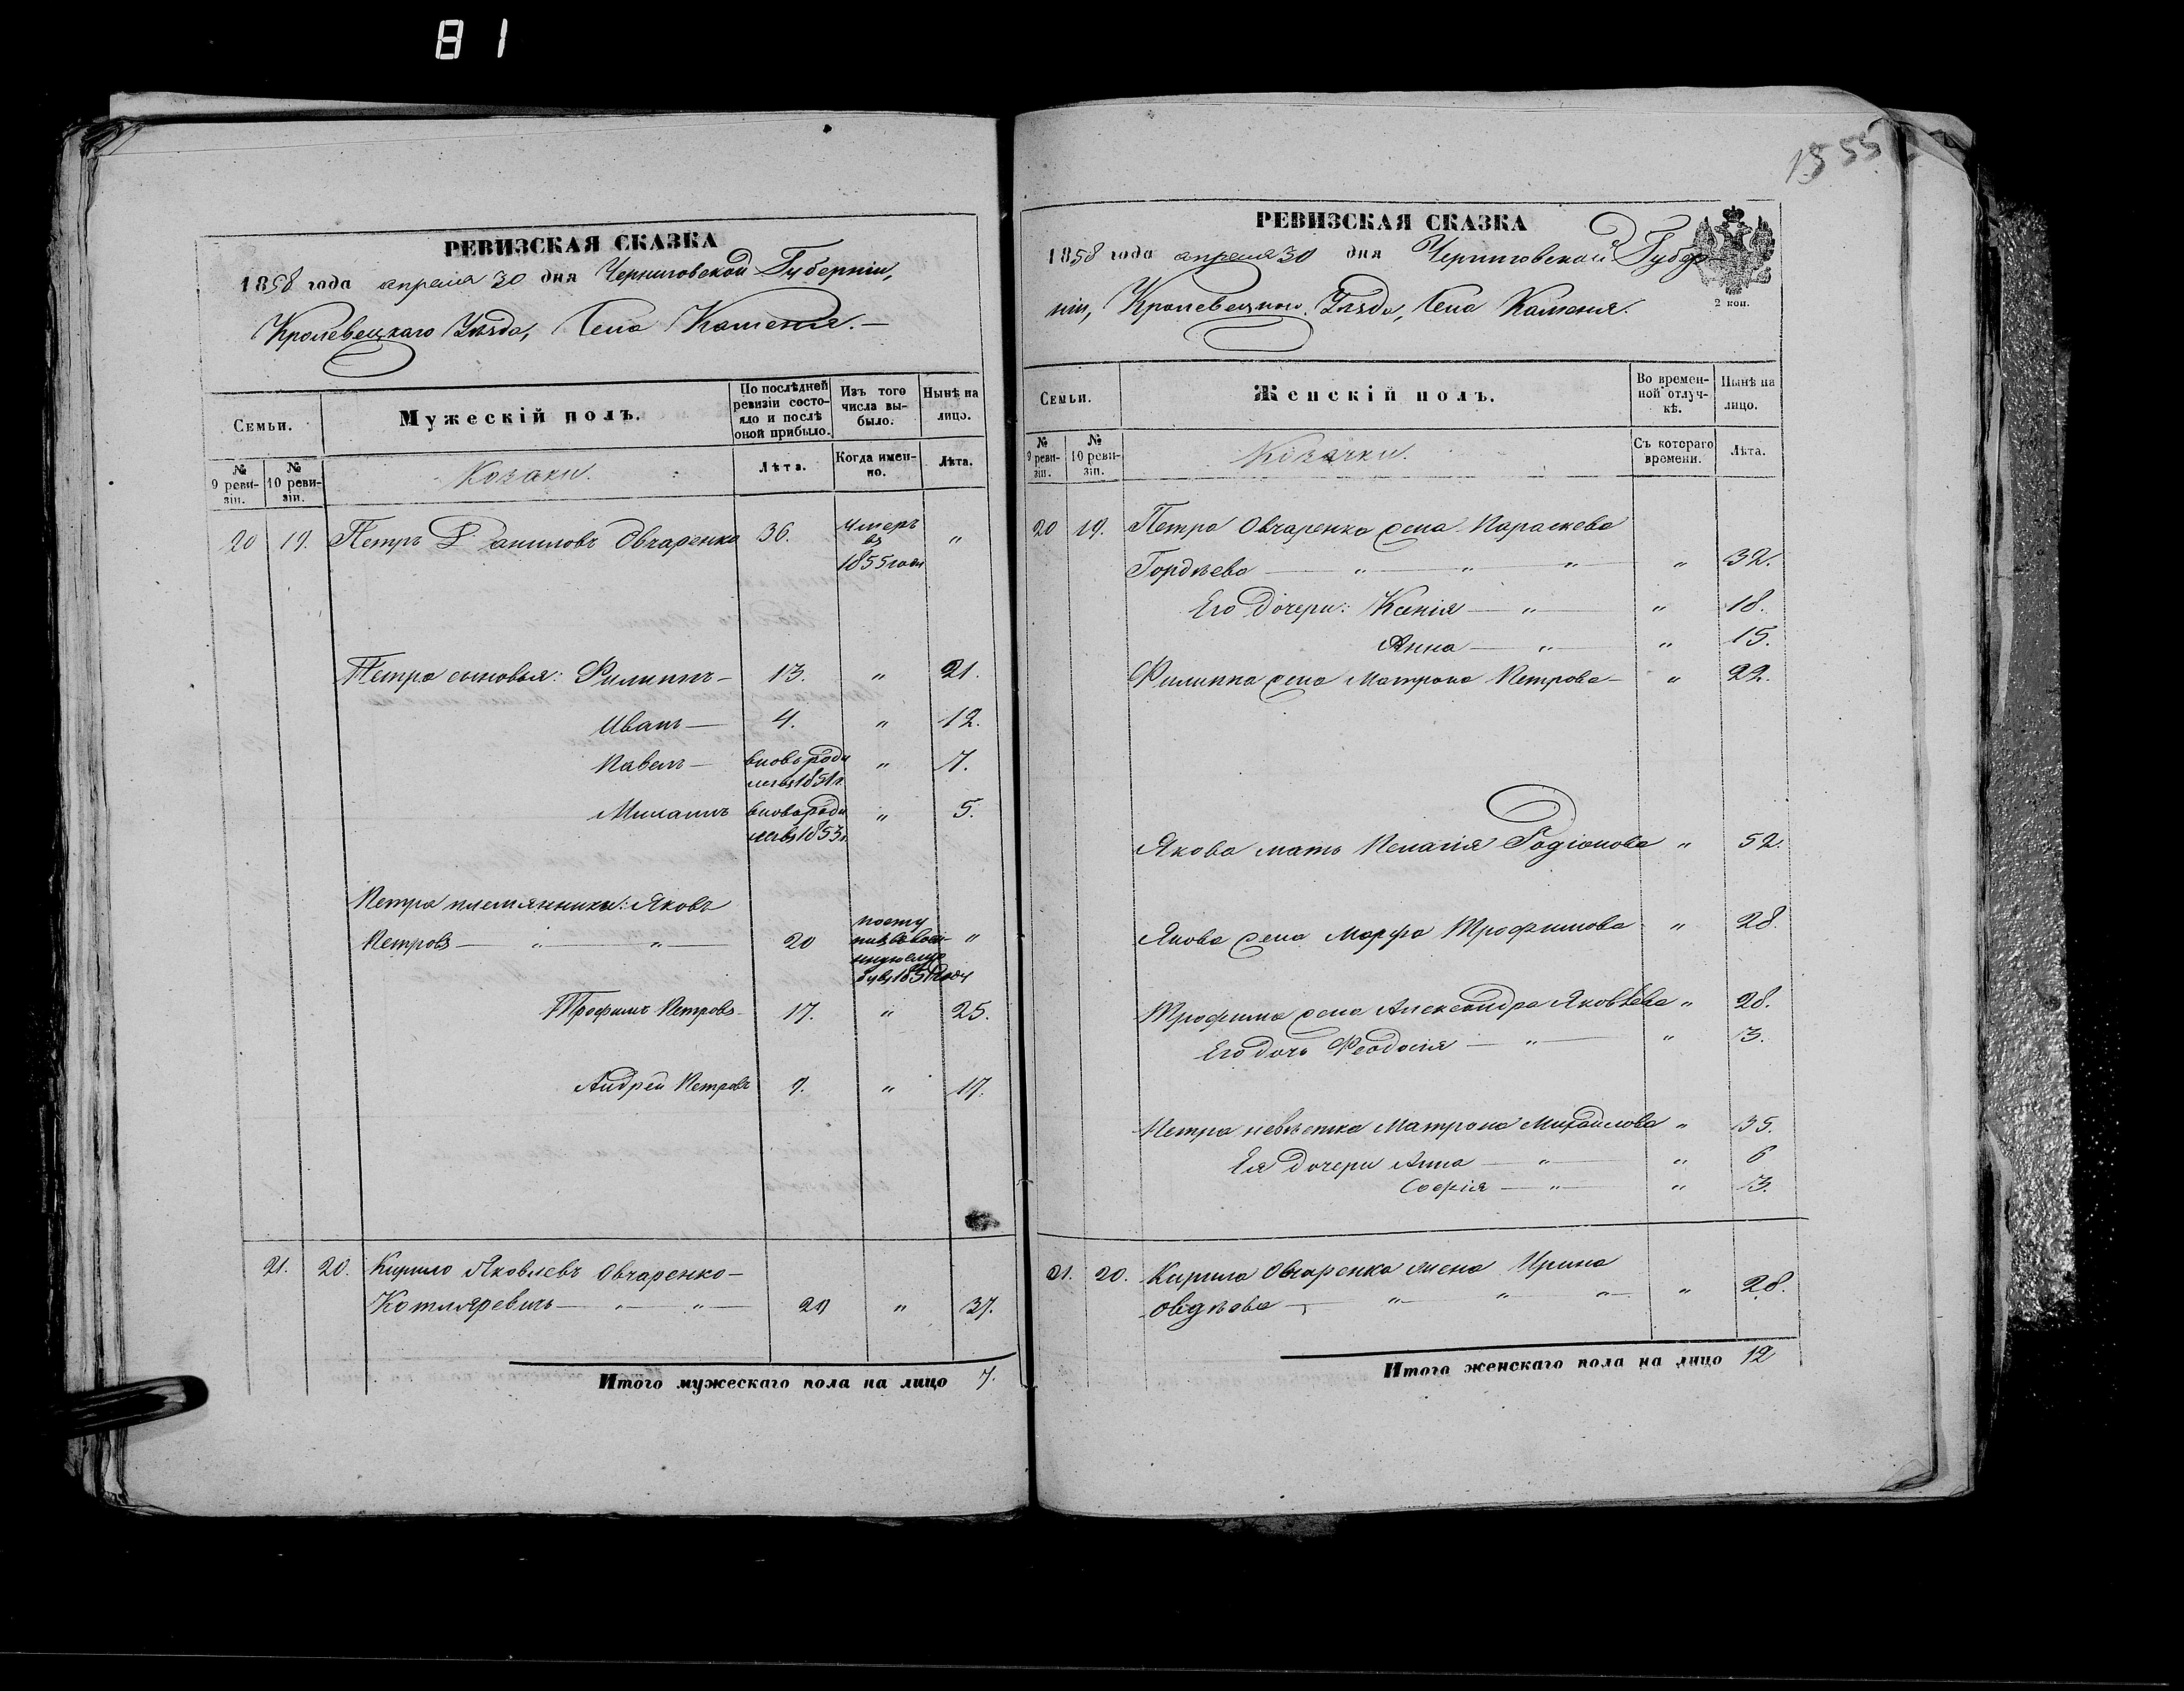 81
1555
РЕВИЗСКАЯ СКАЗКА
1858 года апреля 30 дня Черниговской Губерніи,
Кролевецкаго Уѣзда, Села Каменя.—
Семьи.
Мужескій полъ.
По послѣдней ревизіи состояло и послѣ оной прибыло.
Изъ того числа выбыло.
Нынѣ на лицо.
№ 9 ревизіи.
№ 10 ревизіи.
Козаки.
Лѣта.
Когда именно.
Лѣта.
20 19. Петръ Даниловъ Овчаренко 36. умеръ въ 1855 году "
Петра сыновья: Филиппъ — 13. " 21.
Иванъ — 4. " 12.
Павелъ — вновь роди лся въ 1851 г. " 7.
вновь роди лся въ 1853 г. " 5.
Петра племянники: Яковъ
Петровъ — " — " — 20 "
Трофимъ Петровъ 17. " 25.
Андрей Петровъ 9. " 17.
21. 20. Кирило Яковлевъ Овчаренко—
Котляревичь — " — " — 29 " 37.
Итого мужескаго пола на лицо 7.
РЕВИЗСКАЯ СКАЗКА
1858 года апреля 30 дня Черниговской Губер-
ніи, Кролевецкаго Уѣзда, Села Каменя.
2 коп.
Семьи.
Женскій полъ.
Во временной отлучкѣ.
Нынѣ на лицо.
№ 9 ревизіи.
№ 10 ревизіи.
Козачки.
Съ котораго времени.
Лѣта.
20 19. Петра Овчаренка жена Параскева
Гордѣева — " — " — " — " 32.
Его дочери: Ксенія — " — " 18.
Анна — " — " 15.
Филиппа жена Матрона Петрова — " 22.
Якова мать Пелагія Родіонова " 52.
Якова жена Марфа Трофимова " 28.
Трофима жена Александра Яковлева " 28.
Его дочь Феодосія — " — " 3.
Петра невѣстка Матрона Михайлова " 35.
Ея дочери Анна — " — " 6
Софія — " — " 3.
21. 20. Кирила Овчаренка жена Ирина
— " " " " 28.
Итого женскаго пола на лицо 12